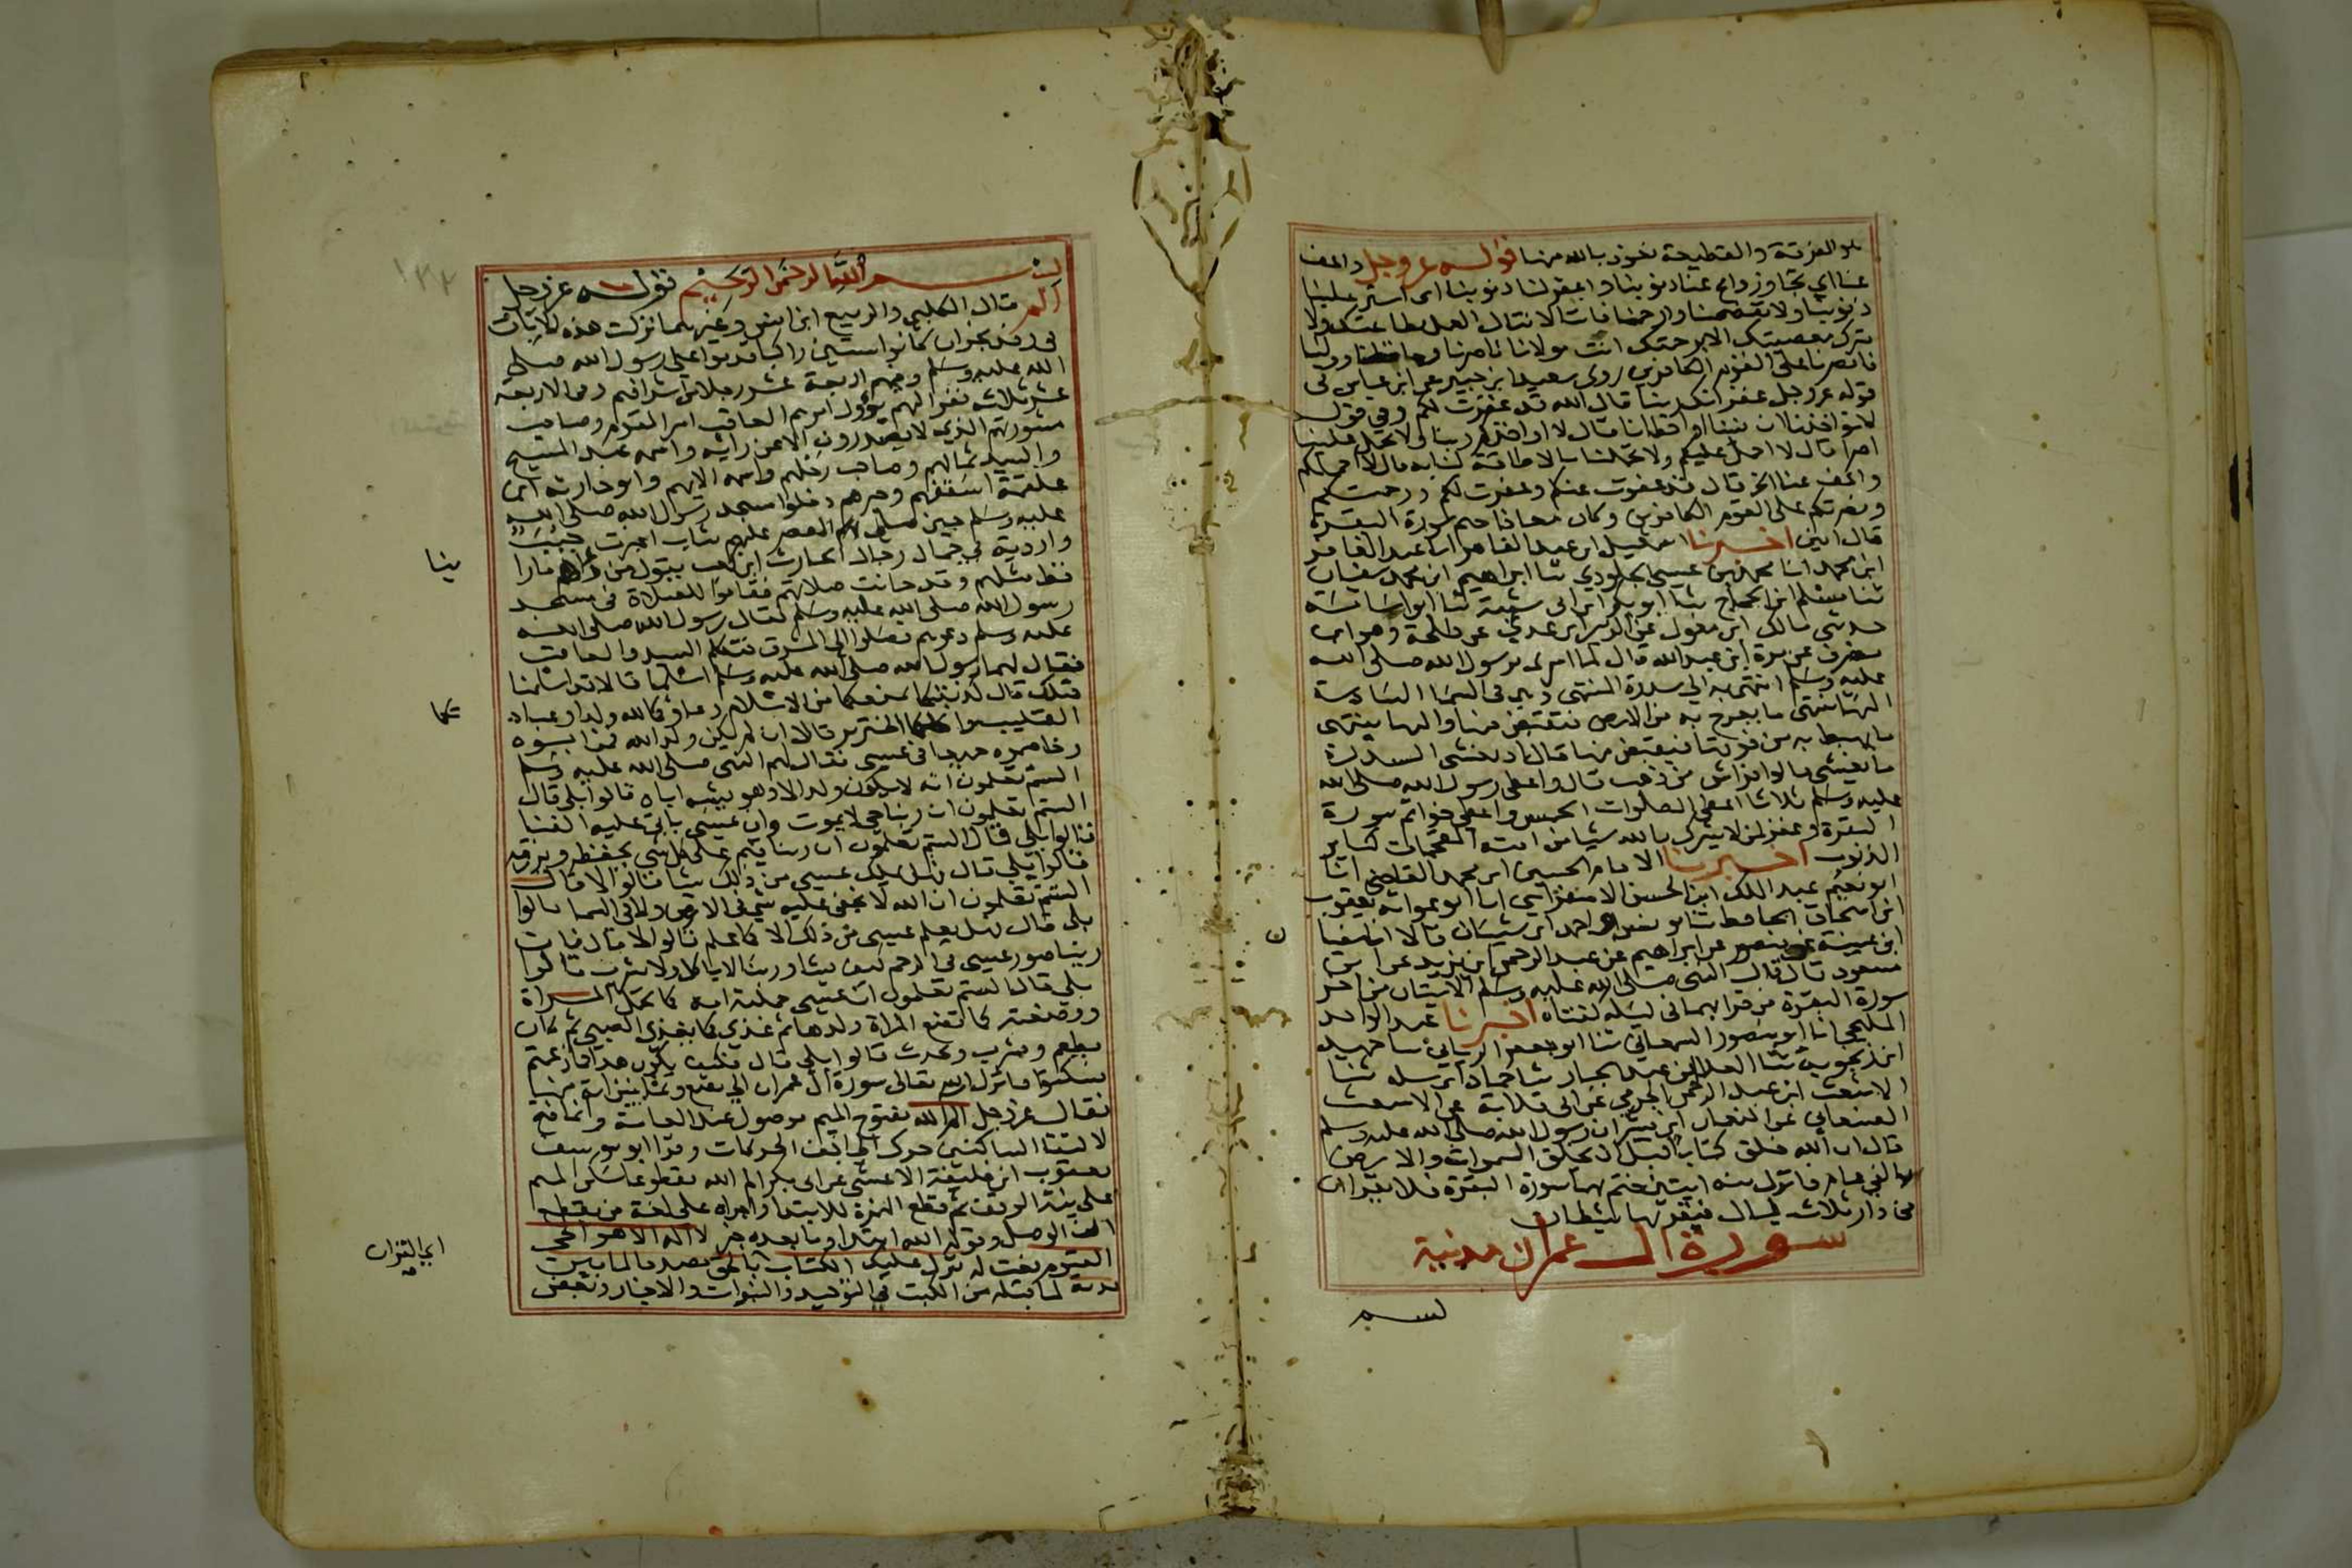 هو الفرقة والقطيعة نعوذ بالله منها قوله عز وجل واعف
عنا اي تجاوز وامح عنا ذنوبنا واغفر لنا ذنوبنا اى استر علينا
ذنوبنا ولا تفضحنا وارحمنا فاننا لا ننال العمل بطاعتك ولا
بترك معصيتك الا برحمتك انت مولانا ناصرنا وحافظنا وولينا
فانصرنا على القوم الكافرين روى سعيد ابن جبير عن ابن عباس في
قوله عز وجل غفرانك ربنا قال الله قد غفرت لكم وفي قوله
لا تؤاخذنا ان نسينا او اخطانا قال لا اواخذكم ربنا ولا تحمل علينا
اصرا قال لا احمل عليكم ولا تحملنا ما لا طاقة لنا به قال لا احملكم
واعف عنا الخ قال قد عفوت عنكم وغفرت لكم ورحمتكم
ونصرتكم على القوم الكافرين وكان معاذ اذا ختم سورة البقرة
قال امين اخبرنا اسمعيل ابن عبد القاهر انا عبد الغافر
ابن محمد انا محمد بن عيسى الجلودي ثنا ابراهيم ابن محمد سفيان
ثنا مسلم ابن الحجاج ثنا ابو بكر ابن ابى شيبة ثنا ابو اسامة
حدثني مالك ابن مغول عن الزبير ابن عدي عن طلحة وهو ابن
مصرف عن مرة ابن عبد الله قال لما اسرى برسول الله صلى الله
عليه وسلم انتهى به الى سدرة المنتهى وهي في السما السادسة
اليها ينتهى ما يعرج به من الارض فيقبض منها واليها ينتهى
ما يهبط به من فوقها فيقبض منها قال اذ يغشى السدرة
ما يغشى قال فراش من ذهب قال واعطى رسول الله صلى الله
عليه وسلم ثلاثا اعطى الصلوات الخمس واعطى خواتم سورة
البقرة وغفر لمن لا يشرك بالله شيا من امته المقحمات كباير
الذنوب اخبرنا الامام الحسين ابن محمد القاضى انا
ابو نعيم عبد الملك ابن الحسن الاسفرايني انا ابو عوانة يعقوب
ابن اسحاق الحافظ ثنا يونس واحمد ابن شيبان قالا ثنا سفيان
ابن عيينة عن منصور عن ابراهيم عن عبد الرحمن ابن يزيد عن ابن
مسعود قال قال النبى صلى الله عليه وسلم الايتان من اخر
سورة البقرة من قرا بهما في ليلة كفتاه اخبرنا عبد الواحد
المليحي انا ابو منصور السمعاني ثنا ابو جعفر الرياني ثنا حميد
ابن زنجويه ثنا العلا ابن عبد الجبار ثنا حماد ابن سلمه ثنا
الاشعث ابن عبد الرحمن الجرمي عن ابى قلابة عن الاشعث
الصنعاني عن النعمان ابن بشير ان رسول الله صلى الله عليه وسلم
قال ان الله خلق كتابا قبل ان يخلق السموات والارض
بالفي عام فانزل منه ايتين ختم بهما سورة البقرة فلا تقران
في دار ثلاث ليال فيقربها شيطان
سورة ال عمران مدنية
بسم
١٣٢
بسم الله الرحمن الرحيم قوله عز وجل
الم قال الكلبي والربيع ابن انس وغيرهما نزلت هذه الايات
فى وفد نجران كانوا ستين راكبا قدموا على رسول الله صلى
الله عليه وسلم وفيهم اربعة عشر رجلا من اشرافهم وفى الاربعة
عشر ثلاثه نفر اليهم يؤول امرهم العاقب امير القوم وصاحب
مشورتهم الذي لا يصدرون الا عن رايه واسمه عبد المسيح
والسيد ثمالهم وصاحب رحلهم واسمه الايهم وابو حارثه ابن
علقمة اسقفهم وحبرهم دخلوا مسجد رسول الله صلى الله
عليه وسلم حين صلى العصر عليهم ثياب الحبرات جبب
واردية في جمال رجال الحارث ابن كعب يقول من راهم ما راينا
وفدا مثلهم وقد حانت صلاتهم فقاموا للصلاة فى مسجد
رسول الله صلى الله عليه وسلم فقال رسول الله صلى الله
عليه وسلم دعوهم فصلوا الى المشرق فتكلم السيد والعاقب
فقال لهما رسول الله صلى الله عليه وسلم اسلما قالا قد اسلمنا
قبلك قال كذبتما يمنعكما من الاسلام دعاوكما لله ولدا وعباد
تكما
الصليب واكلكما الخنزير قالا ان لم يكن ولد الله فمن ابوه
وخاصموه جميعا في عيسى فقال لهم النبى صلى الله عليه وسلم
الستم تعلمون انه لا يكون ولد الا وهو يشبه اباه قالوا بلى قال
الستم تعلمون ان ربنا حي لا يموت وان عيسى ياتي عليه الفنا
قالوا بلى قال الستم تعلمون ان ربنا قيم على كل شي يحفظه ويرزقه
قالوا بلى قال فهل يملك عيسى من ذلك شيا قالوا لا قال
الستم تعلمون ان الله لا يخفى عليه شي فى الارض ولا فى السما قالوا
بلى قال فهل يعلم عيسى من ذلك الا ما علم قالوا لا قال فان
ربنا صور عيسى فى الرحم كيف يشا وربنا لا ياكل ولا يشرب قالوا
بلى قال الستم تعلمون ان عيسى حملته امه كما تحمل المراة
ووضعته كما تضع المراة ولدها ثم غذي كما يغذى الصبي ثم كان
يطعم ويشرب ويحدث قالوا بلى قال فكيف يكون هذا كما زعمتم
فسكتوا فانزل الله تعالى سورة ال عمران الى بضع وثمانين اية منها
فقال عز وجل الم الله مفتوح الميم موصول عند العامة وانما فتح
لالتقا الساكنين حرك الى اخف الحركات وقرا ابو يوسف
يعقوب ابن خليفة الاعشى عن ابى بكر الم الله مقطوعا سكن الميم
على نية الوقف ثم قطع الهمزة للابتدا واجراه على لغة من يقطع
الف الوصل وقوله الله ابتدا وما بعده خبر لا اله الا هو الحي
القيوم نعت له نزل عليك الكتاب بالحق مصدقا لما بين
اي القران
يديه لما قبله من الكتب في التوحيد والنبوات والاخبار وبعض